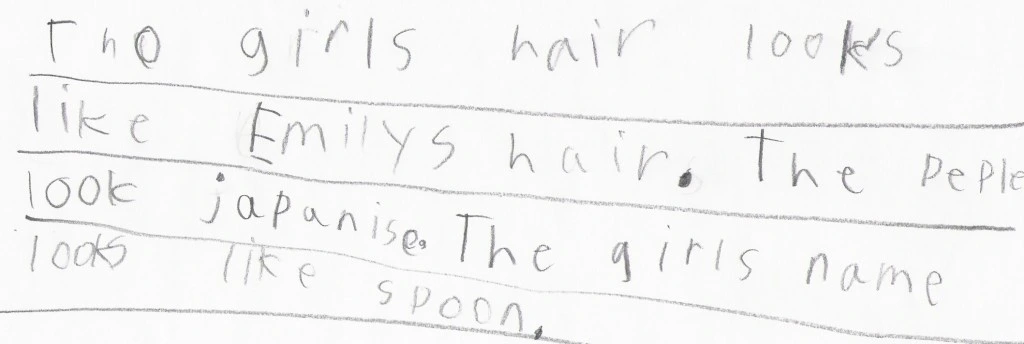 Tho girls hair looks
like Emilys hair. The peple
look japanise. The girls name
looks like spoon.